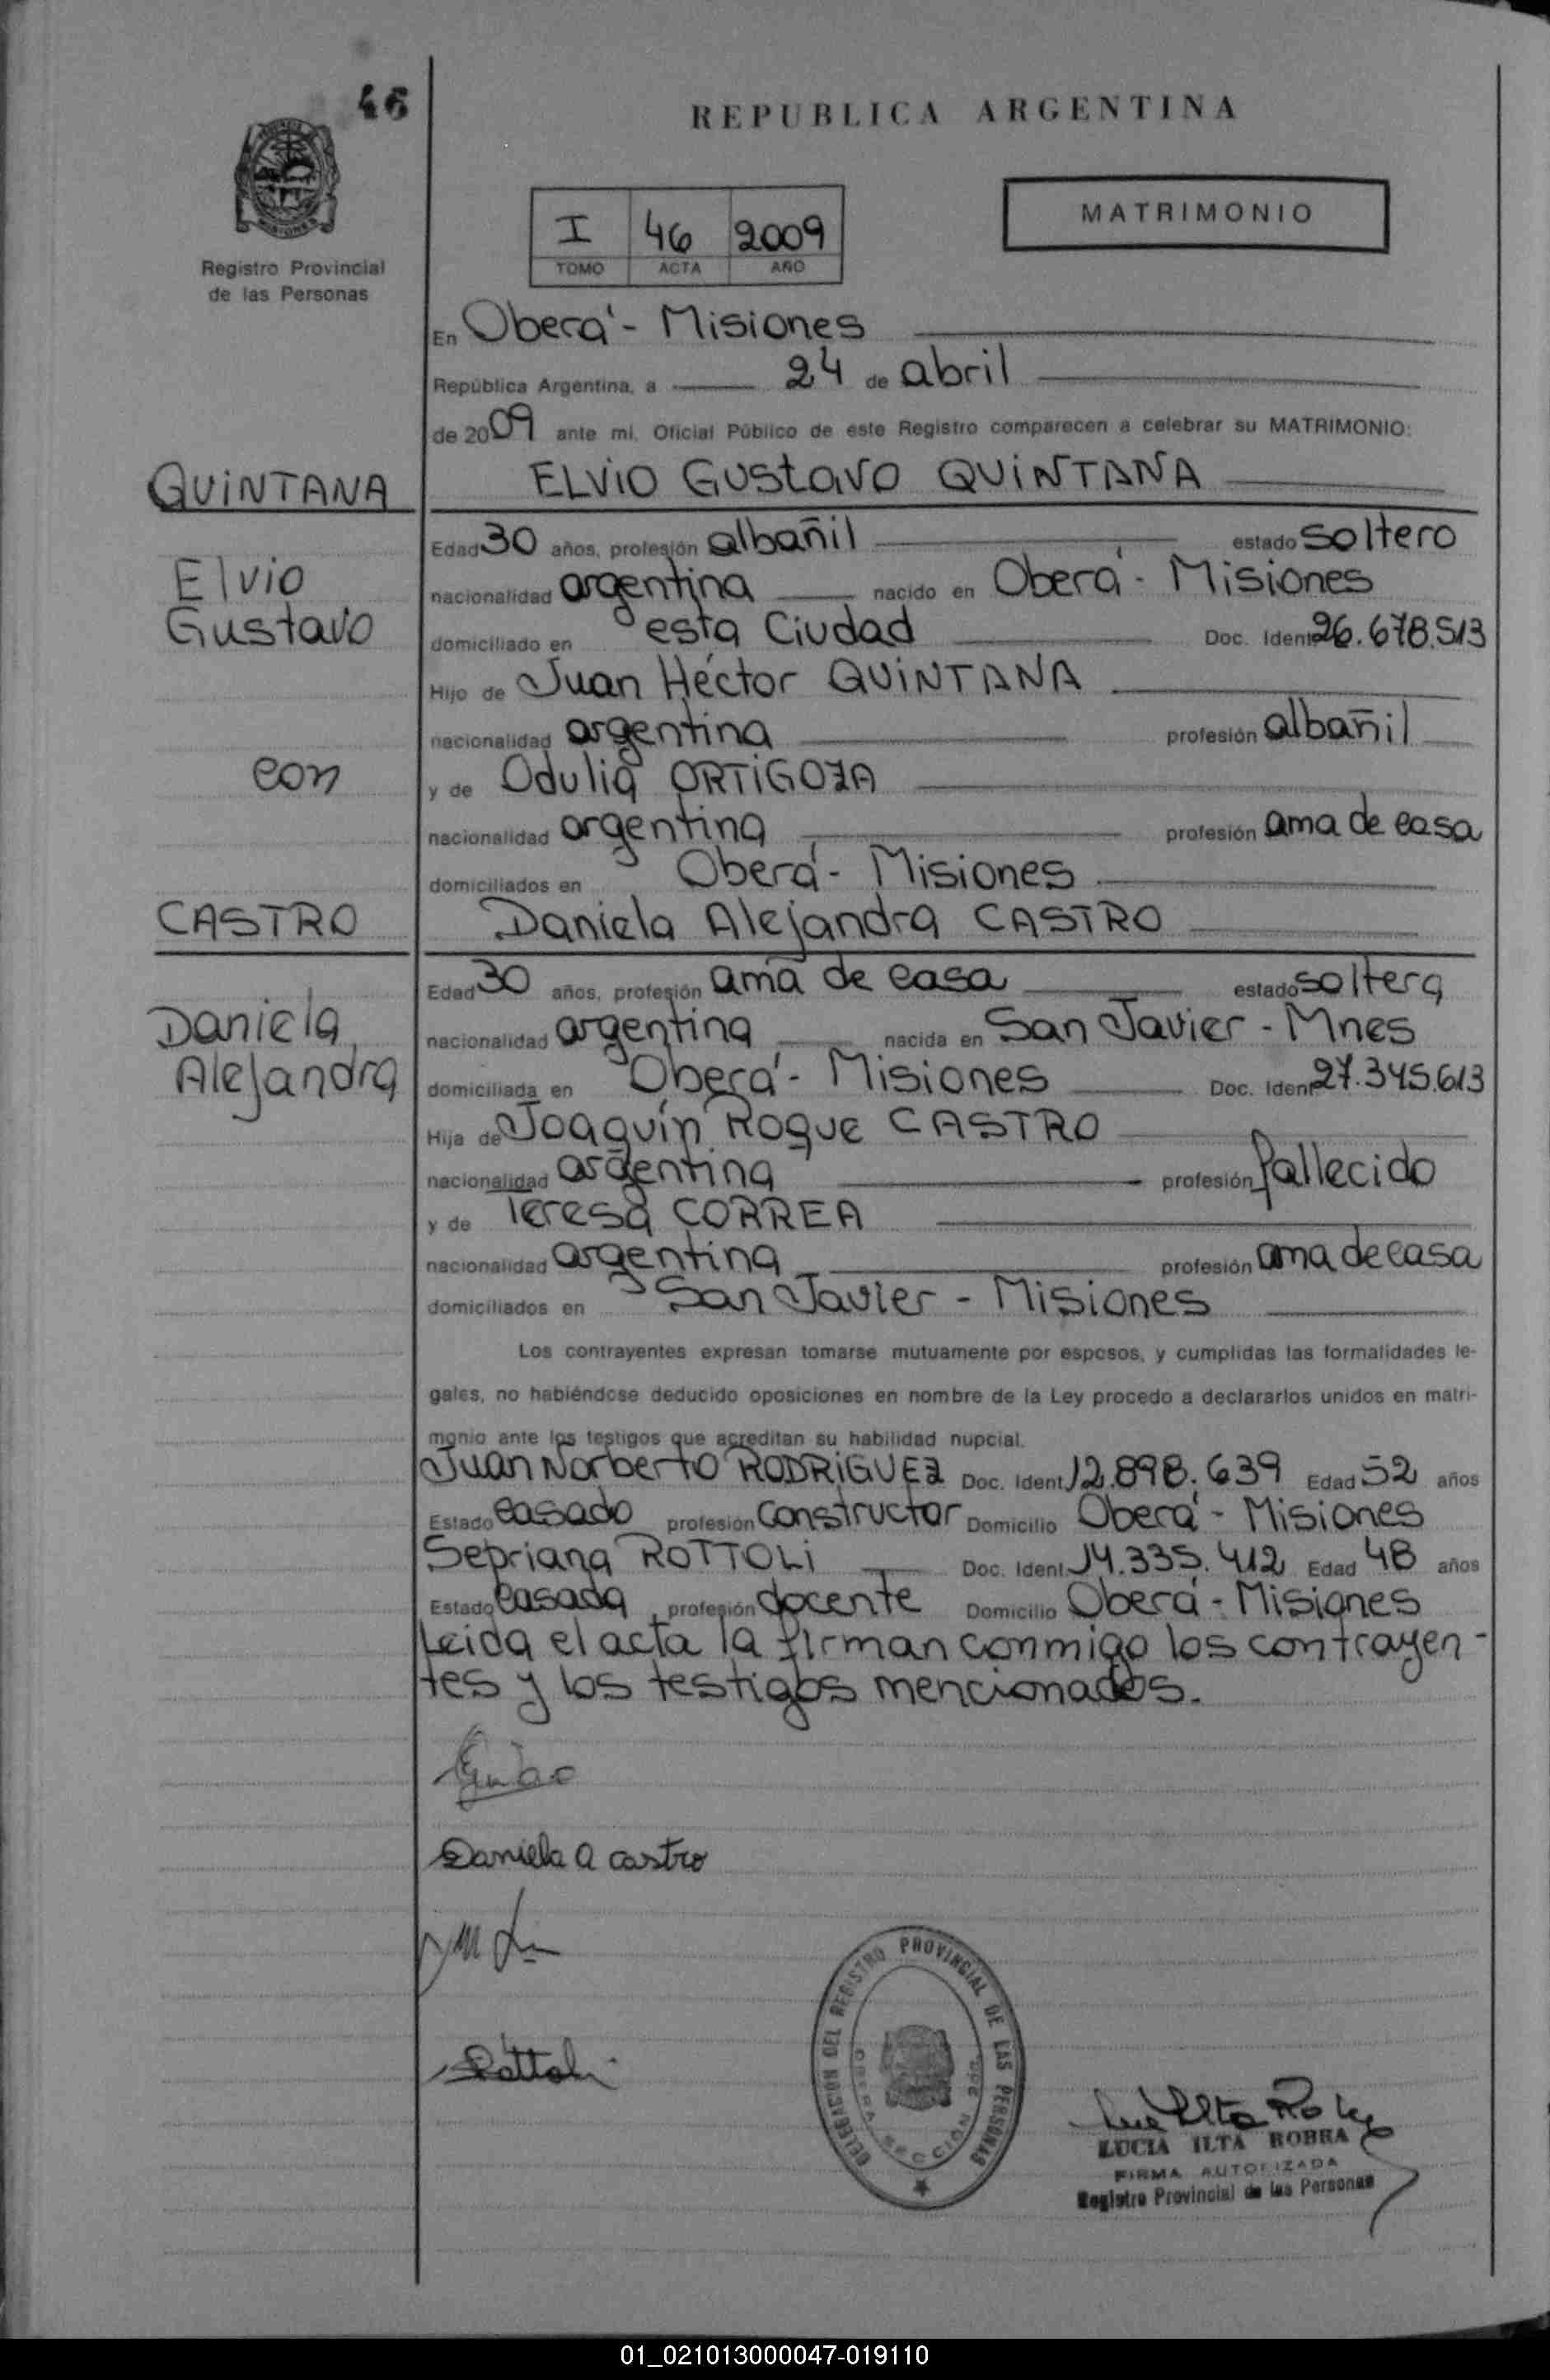 46
REPUBLICA ARGENTINA
MATRIMONIO
I 46 2009
TOMO ACTA AÑO
Registro Provincial
de las Personas
En Oberá - Misiones
República Argentina, a 24 de abril
de 2009 ante mí, Oficial Público de este Registro comparecen a celebrar su MATRIMONIO:
QUINTANA
Elvio
Gustavo
con
CASTRO
Daniela
Alejandra
ELVIO GUSTAVO QUINTANA
Edad 30 años, profesión albañil estado soltero
nacionalidad argentina nacido en Oberá - Misiones
domiciliado en esta Ciudad Doc. Ident 26.678.513
Hijo de Juan Héctor QUINTANA
nacionalidad argentina profesión albañil
y de Odulia ORTIGOZA
nacionalidad argentina profesión ama de casa
domiciliados en Oberá - Misiones
Daniela Alejandra CASTRO
Edad 30 años, profesión ama de casa estado soltera
nacionalidad argentina nacida en San Javier - Mnes
domiciliada en Oberá - Misiones Doc. Ident 27.345.613
Hija de Joaquín Roque CASTRO
nacionalidad argentina profesión fallecido
y de Teresa CORREA
nacionalidad argentina profesión ama de casa
domiciliados en San Javier - Misiones
Los contrayentes expresan tomarse mutuamente por esposos, y cumplidas las formalidades le-
gales, no habiéndose deducido oposiciones en nombre de la Ley procedo a declararlos unidos en matri-
monio ante los testigos que acreditan su habilidad nupcial.
Juan Norberto RODRIGUEZ Doc. Ident 12.898.639 Edad 52 años
Estado casado profesión constructor Domicilio Oberá - Misiones
Sepriana ROTTOLI Doc. Ident 14.335.412 Edad 48 años
Estado casada profesión docente Domicilio Oberá - Misiones
Leida el acta la firman conmigo los contrayen-
tes y los testigos mencionados.
Daniela A castro
Rottoli
DELEGACION DEL REGISTRO PROVINCIAL DE LAS PERSONAS
OBERA SECCION 2da
LUCIA ILTA ROBRA
FIRMA AUTORIZADA
Registro Provincial de las Personas
01_021013000047-019110